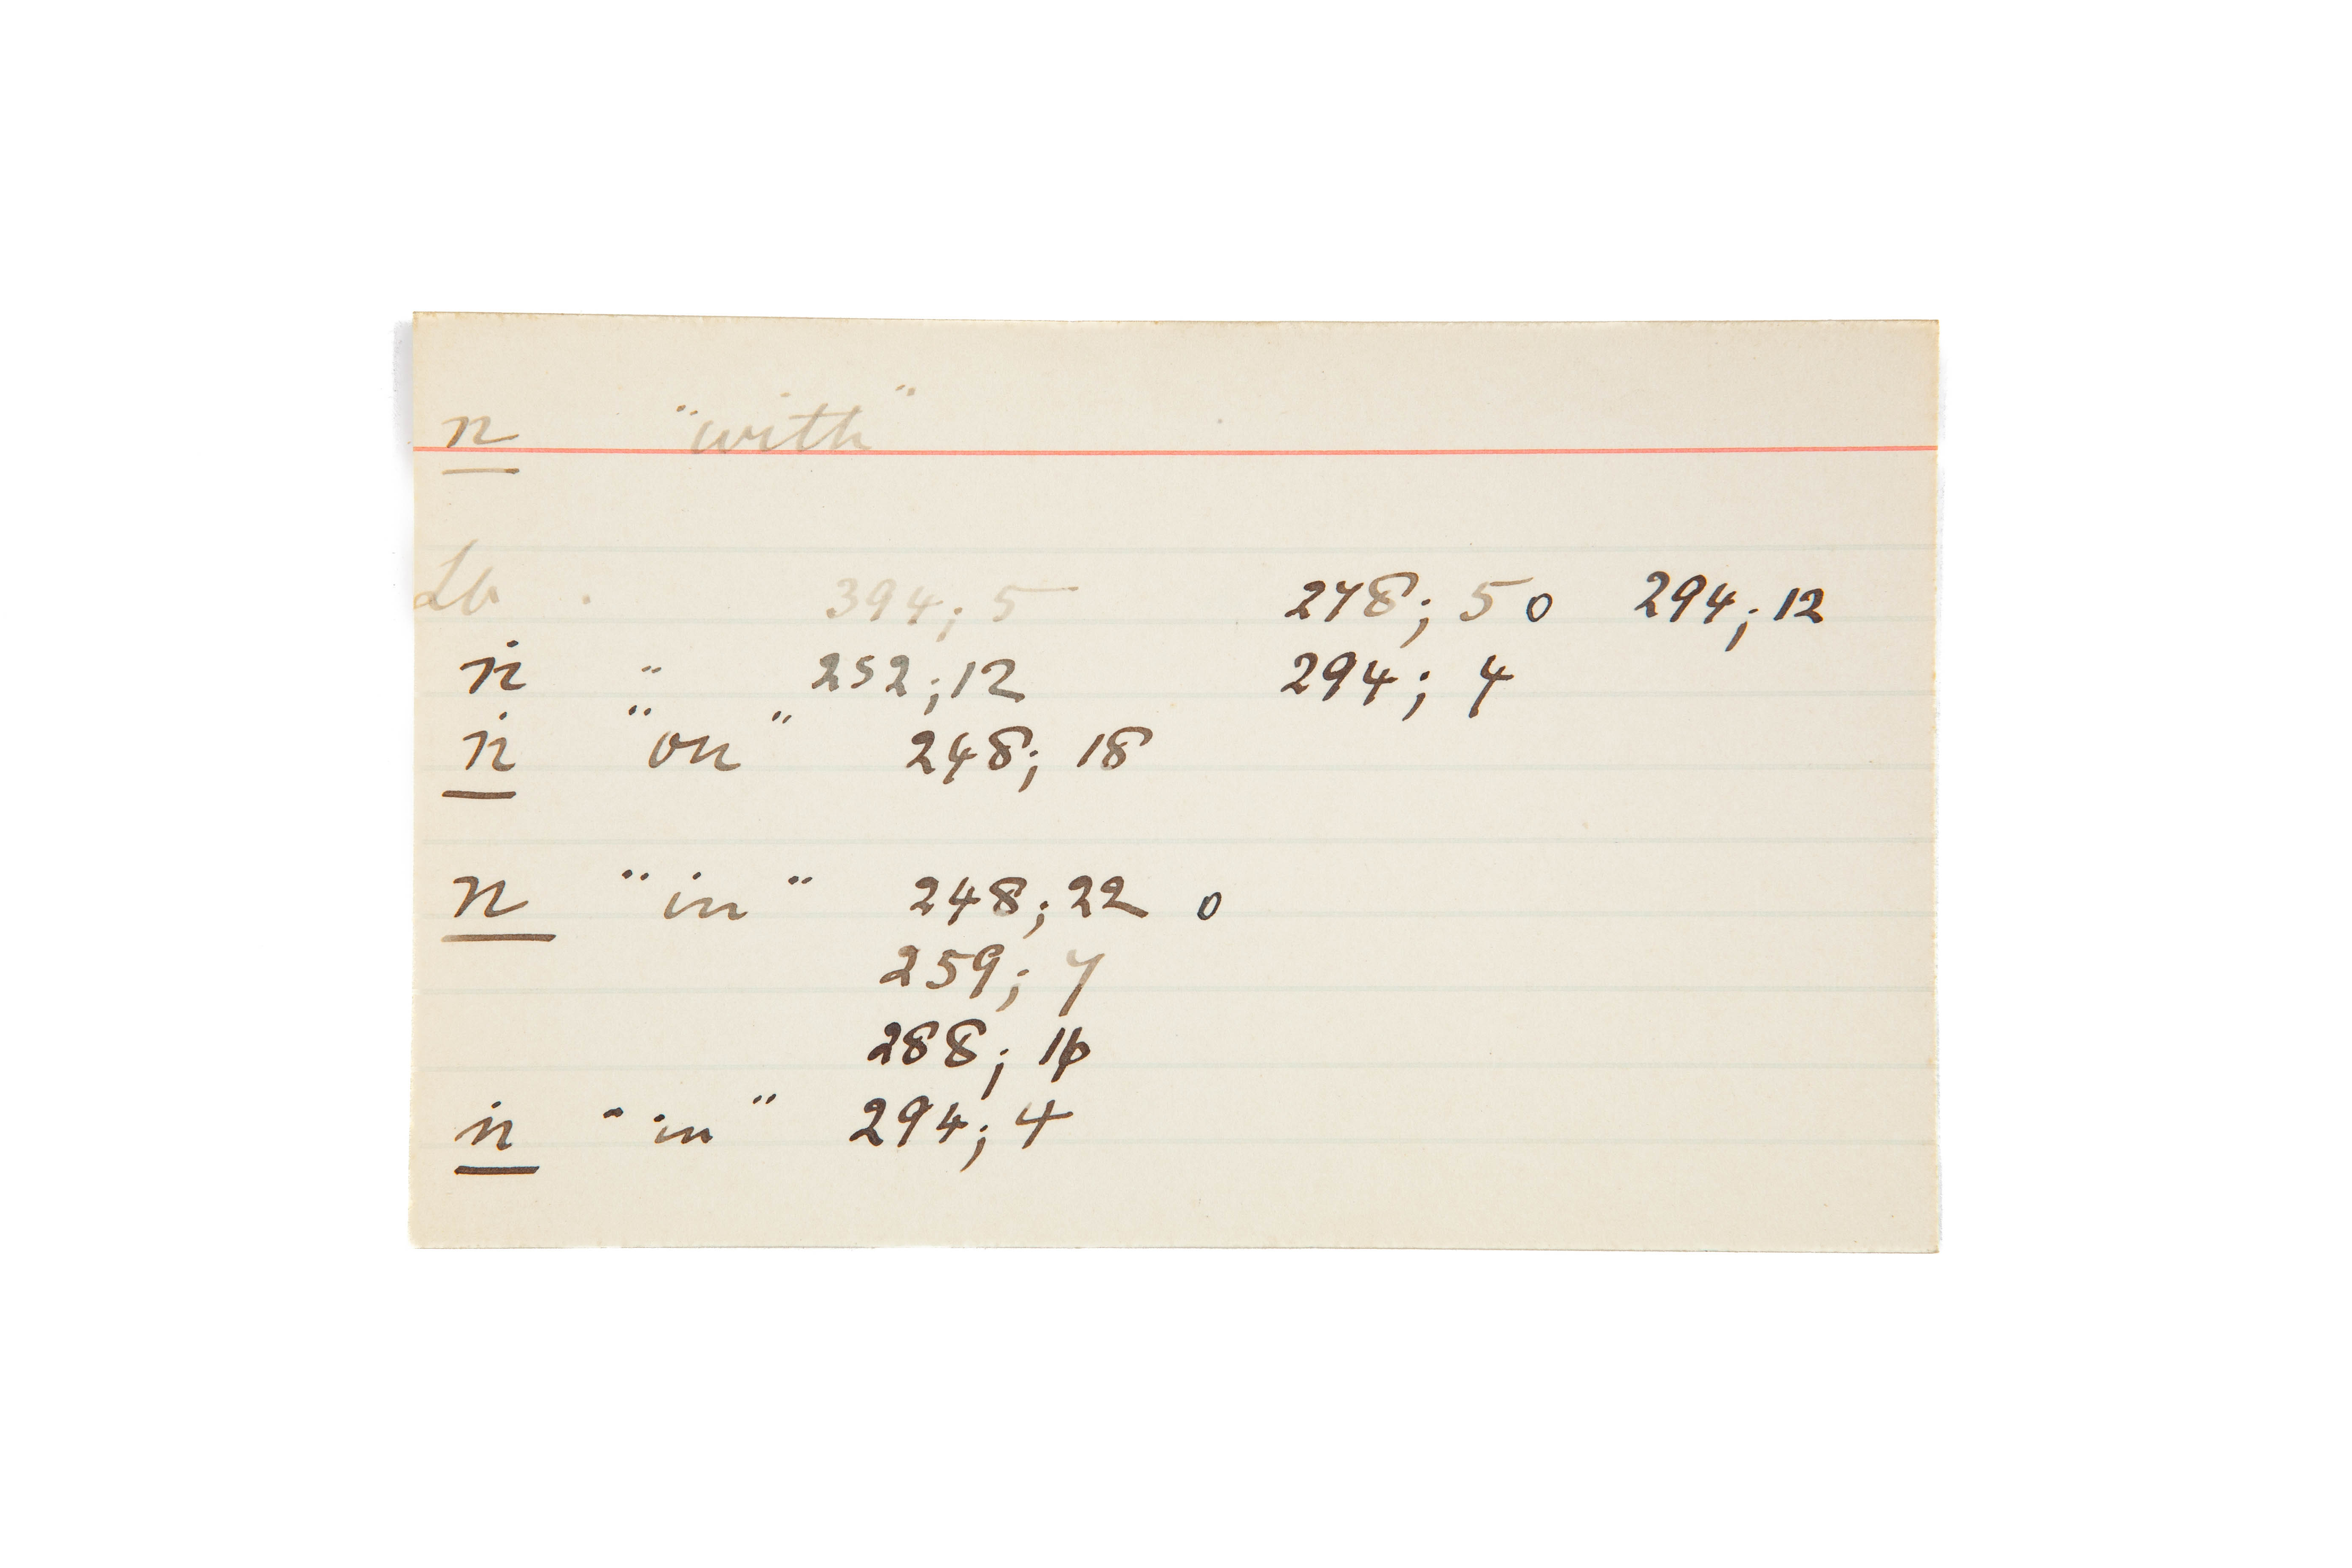 n "with"
Lb . 394; 5 278; 5 o 294; 12
ṅ " 252; 12 294; 4
ṅ "on" 248; 18
n "in" 248; 22 o
259; 7
288; 16
ṅ "in" 294; 4